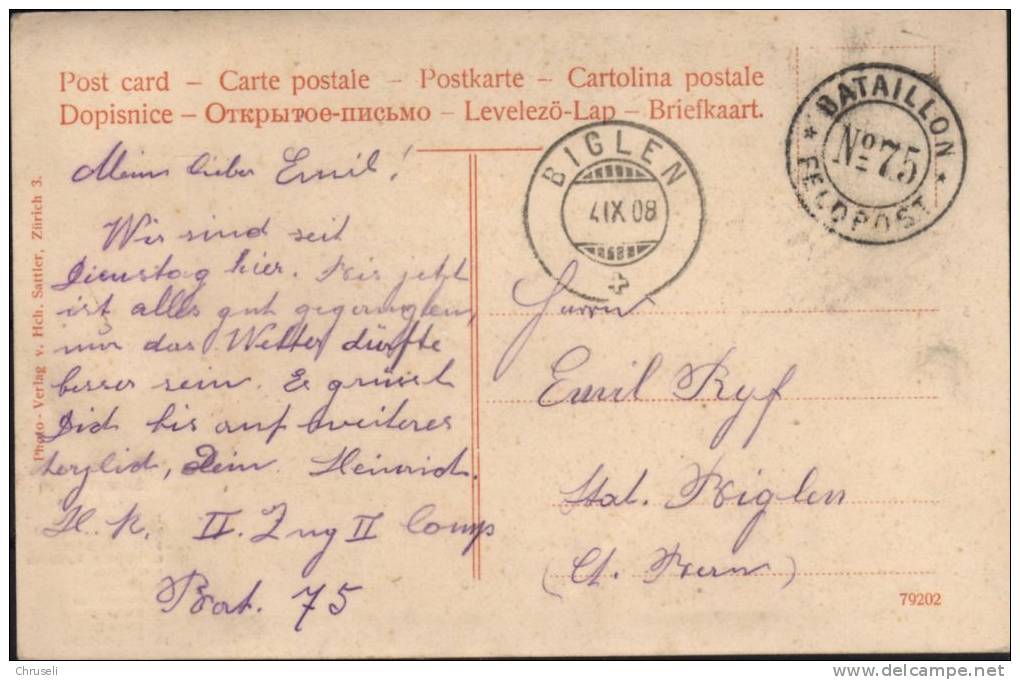 Post card – Carte postale – Postkarte – Cartolina postale
Dopisnice – Открытое-письмо – Levelezö-Lap – Briefkaart.
BATAILLON
No 75
FELDPOST
BIGLEN
4 IX 08
Photo - Verlag v. Hch. Sattler, Zürich 3.
Mein lieber Emil!
Wir sind seit
Dienstag hier. Bis jetzt
ist alles gut gegangen,
nur das Wetter dürfte
besser sein. Es grüsst
Dich bis auf weiteres
herzlich, Dein Heinrich.
H. R. II. Zug II Comp
Bat. 75
Herrn
Emil Ryf
Stat. Biglen
(Ct. Bern)
79202
Chruseli
www.delcampe.net